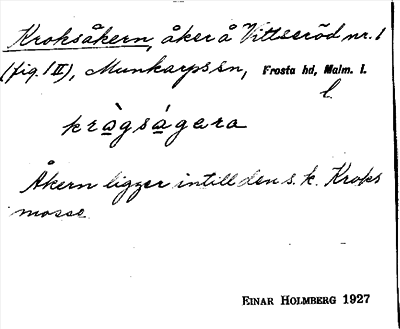 Kroksåkern, åker å Vittseröd nr. 1
(fig. 1 II), Munkarps sn, Frosta hd, Malm. l.
l.
kràgságəra
Åkern ligger intill den s. k. Kroks
mosse.
EINAR HOLMBERG 1927